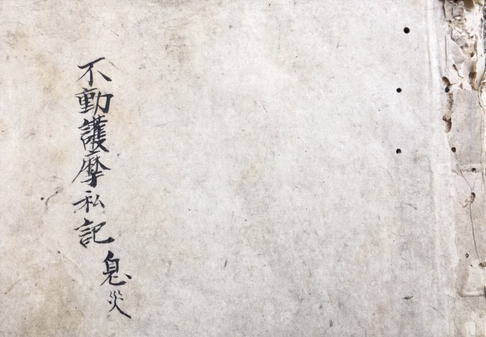 不動護摩私記 息災